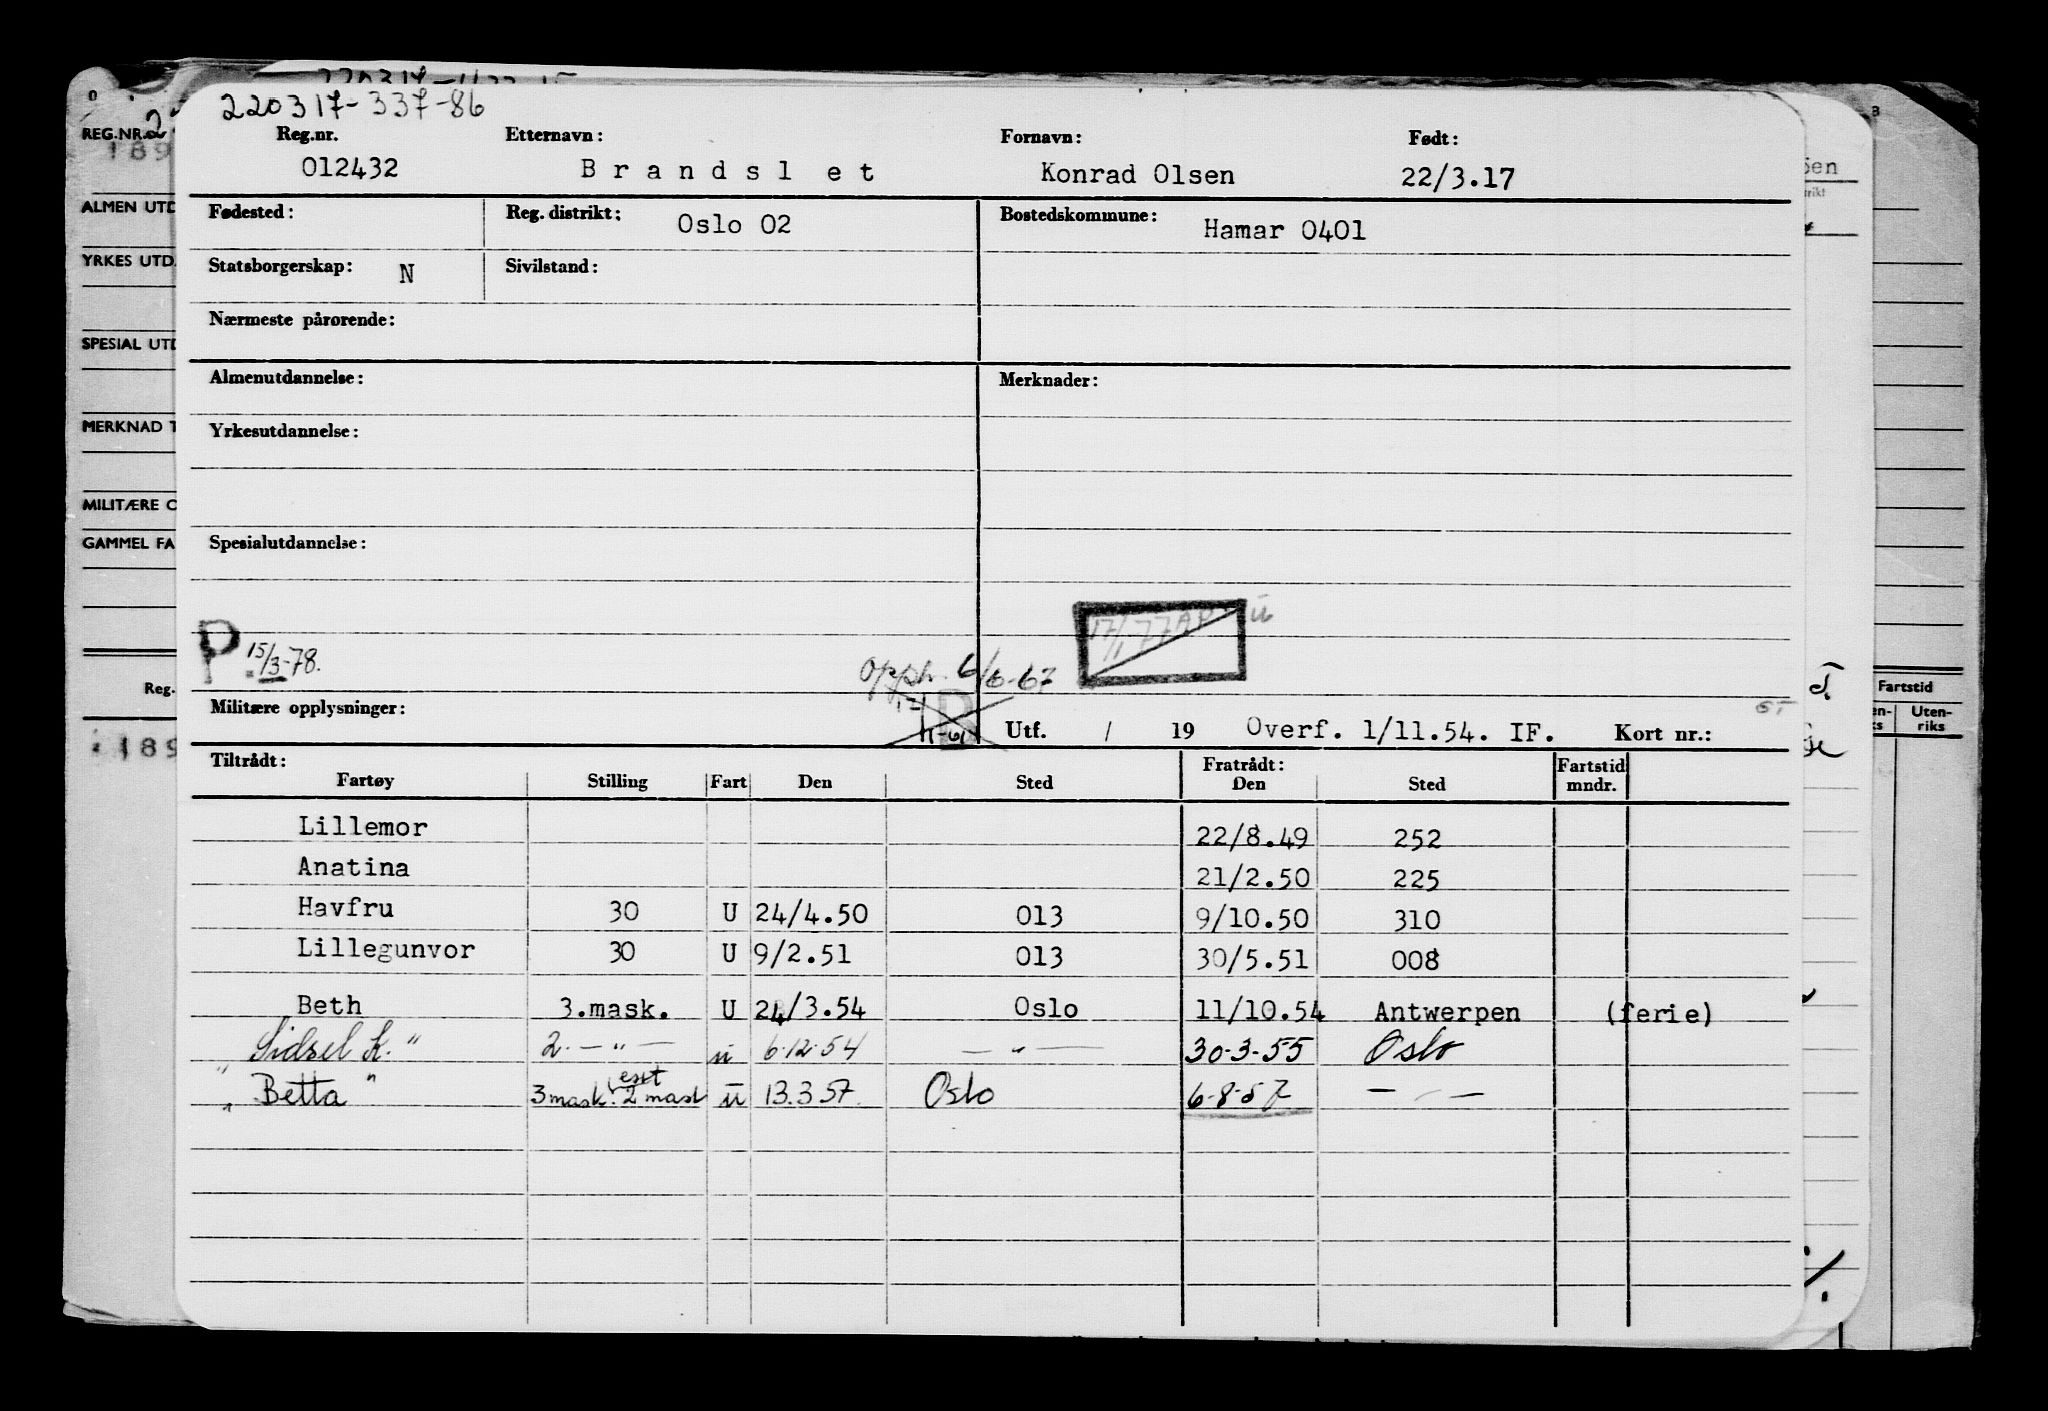 220317-337-86
Reg.nr. Etternavn: Fornavn: Født:
012432 Brandslet Konrad Olsen 22/3.17
Fødested: Reg. distrikt: Oslo 02 Bostedskommune: Hamar 0401
Statsborgerskap: N Sivilstand:
Nærmeste pårørende:
Almenutdannelse: Merknader:
Yrkesutdannelse:
Spesialutdannelse:
P 15/3-78. Opph. 6/6-67 17/1 77 AP ū
Militære opplysninger: B Utf. / 19 Overf. 1/11.54. IF. Kort nr.:
Tiltrådt: Fratrådt: Fartstid
Fartøy Stilling Fart Den Sted Den Sted mndr.
Lillemor 22/8.49 252
Anatina 21/2.50 225
Havfru 30 U 24/4.50 013 9/10.50 310
Lillegunvor 30 U 9/2.51 013 30/5.51 008
Beth 3.mask. U 24/3.54 Oslo 11/10.54 Antwerpen (ferie)
"Sidsel K." 2. — " — ū 6.12.54 — " — 30-3-55 Oslo
"Betta" 3 mask. 2 mask ū 13.3.57. Oslo 6-8-57 — " —
REG.NR.
189
ALMEN UTD
YRKES UTD.
SPESIAL UTD
MERKNAD T
MILITÆRE O
GAMMEL FA
Reg.
189
Fartstid
Uten-
riks